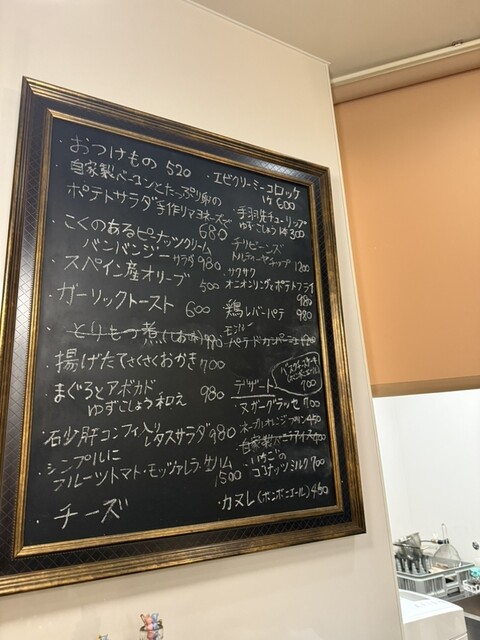 ・おつけもの 520
・自家製ベーコンとたっぷり卵の
ポテトサラダ 手作りマヨネーズで
680
・こくのあるピーナッツクリーム
バンバンジーサラダ 980
・スペイン産オリーブ
500
・ガーリックトースト 600
・とりもつ煮(しお味)
・揚げたてさくさくおかき 700
・まぐろとアボカド 980
ゆずこしょう和え
・石少肝コンフィ入り
レタスサラダ 980
・シンプルに
フルーツトマト・モッツァレラ・生ハム
1500
・チーズ
・エビクリーミーコロッケ
1ケ 600
手羽先チューリップ
ゆずこしょう 1本 300
チリビーンズ
トルティーヤチップ 1200
サクサク
オニオンリングとポテトフライ
980
鶏レバーパテ 980
パテドカンパーニュ 1200
バスクチーズケーキ
(ボンボニエール)
700
デザート
・ヌガーグラッセ 700
・ホールオレンジプリン 450
・自家製バニラアイス
・いちごの
ココナッツミルク 700
・カヌレ(ボンボニエール) 450